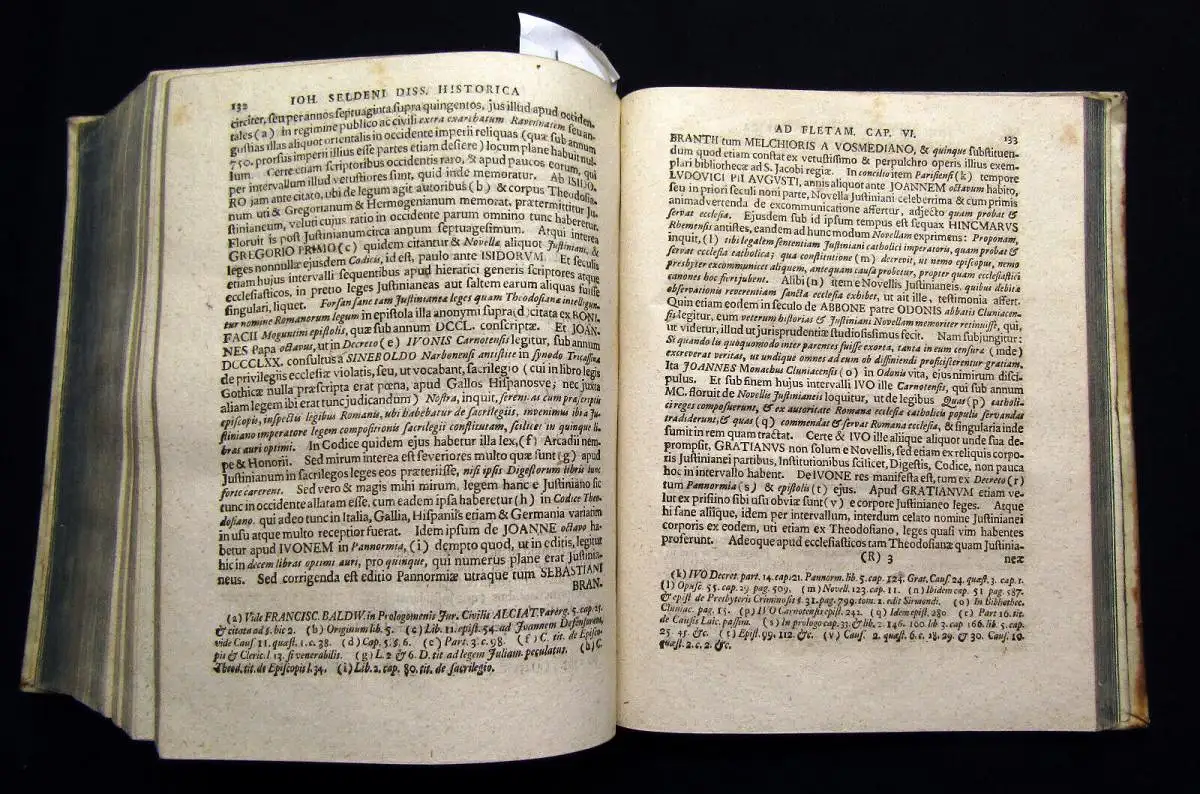 132 IOH. SELDENI DISS. HISTORICA
circiter, seu per annos septuaginta supra quingentos, jus illud apud occiden-
tales (a) in regimine publico ac civili extra exarchatum Ravennatem seu an-
gustias illas aliquot orientalis in occidente imperii reliquas (quæ sub annum
750. prorsus imperii illius esse partes etiam desiere) locum plane habuit nul-
lum. Certe etiam scriptoribus occidentis raro, & apud paucos eorum, qui
per intervallum illud vetustiores sunt, quid inde memoratur. Ab ISIDO-
RO jam ante citato, ubi de legum agit autoribus (b) & corpus Theodosia-
num uti & Gregorianum & Hermogenianum memorat, prætermittitur Ju-
stinianeum, veluti cujus ratio in occidente parum omnino tunc haberetur.
Floruit is post Justinianum circa annum septuagesimum. Atqui interea
GREGORIO PRIMO (c) quidem citantur & Novellæ aliquot Justiniani, &
leges nonnullæ ejusdem Codicis, id est, paulo ante ISIDORUM. Et seculis
etiam hujus intervalli sequentibus apud hieratici generis scriptores atque
ecclesiasticos, in pretio leges Justinianeas aut saltem earum aliquas fuisse
singulari, liquet. Forsan sane tam Justinianeæ leges quam Theodosianæ intelligun-
tur nomine Romanorum legum in epistola illa anonymi supra (d) citata ex BONI-
FACII Moguntini epistolis, quæ sub annum DCCL. conscriptæ. Et JOAN-
NES Papa octavus, ut in Decreto (e) IVONIS Carnotensis legitur, sub annum
DCCCLXX. consultus a SINEBOLDO Narbonensi antistite in Synodo Tricassina
de privilegiis ecclesiæ violatis, seu, ut vocabant, sacrilegio (cui in libro legis
Gothicæ nulla præscripta erat pœna, apud Gallos Hispanosve; nec juxta
aliam legem ibi erat tunc judicandum) Nostra, inquit, serenitas cum præscriptis
episcopis, inspectis legibus Romanis, ubi habebatur de sacrilegiis, invenimus ibi a Ju-
stiniano imperatore legem compositionis sacrilegii constitutam, scilicet in quinque li-
bras auri optimi. In Codice quidem ejus habetur illa lex, (f) Arcadii nem-
pe & Honorii. Sed mirum interea est severiores multo quæ sunt (g) apud
Justinianum in sacrilegos leges eos præteriisse, nisi ipsis Digestorum libris tunc
forte carerent. Sed vero & magis mihi mirum, legem hanc e Justiniano sic
tunc in occidente allatam esse, cum eadem ipsa haberetur (h) in Codice Theo-
dosiano. qui adeo tunc in Italia, Gallia, Hispaniis etiam & Germania variatim
in usu atque multo receptior fuerat. Idem ipsum de JOANNE octavo ha-
betur apud IVONEM in Pannormia, (i) dempto quod, ut in editis, legitur
hic in decem libras optimi auri, pro quinque, qui numerus plane erat Justinia-
neus. Sed corrigenda est editio Pannormiæ utraque tum SEBASTIANI
BRAN-
(a) Vide FRANCISC. BALDW. in Prologomenis Jur. Civilis ALCIAT. Parerg. 5. cap. 23.
& citata ad §. hic 2. (b) Originum lib. 5. (c) Lib. 11. epist. 54. ad Joannem Defensorem,
vide Caus. 11. quæst. 1. c. 38. (d) Cap. 5. §. 6. (e) Part. 3. c. 98. (f) C. tit. de Episco-
pis & Cleric. l. 13. si venerabilis. (g) L. 2 & 6. D. tit. ad legem Juliam. peculatus. (h) C.
Theod. tit. de Episcopis l. 34. (i) Lib. 2. cap. 80. tit. de sacrilegio.
AD FLETAM. CAP. VI. 133
BRANTII tum MELCHIORIS A VOSMEDIANO, & quinque substituen-
dum quod etiam constat ex vetustissimo & perpulchro operis illius exem-
plari bibliothecæ ad S. Jacobi regiæ. In concilio item Parisiensi (k) tempore
LUDOVICI PII AUGUSTI, annis aliquot ante JOANNEM octavum habito,
seu in priori seculi noni parte, Novella Justiniani celeberrima & cum primis
animadvertenda de excommunicatione affertur, adjecto quam probat &
servat ecclesia. Ejusdem sub id ipsum tempus est sequax HINCMARUS
Rhemensis antistes, eandem ad hunc modum Novellam exprimens: Proponam,
inquit, (l) tibi legalem sententiam Justiniani catholici imperatoris, quam probat &
servat ecclesia catholica; qua constitutione (m) decrevit, ut nemo episcopus, nemo
presbyter excommunicet aliquem, antequam causa probetur, propter quam ecclesiastici
canones hoc fieri jubent. Alibi (n) item e Novellis Justinianeis. quibus debita
observationis reverentiam sancta ecclesia exhibet, ut ait ille, testimonia affert.
Quin etiam eodem in seculo de ABBONE patre ODONIS abbatis Cluniacen-
sis legitur, eum veterum historias & Justiniani Novellam memoriter retinuisse, qui,
ut videtur, illud ut jurisprudentiæ studiosissimus fecit. Nam subjungitur:
Si quando lis quoquomodo inter partes fuisset exorta, tanta in eum censura (inde)
excreverat veritas, ut undique omnes ad eum ob diffiniendi proficisterentur gratiam.
Ita JOANNES Monachus Cluniacensis (o) in Odonis vita, ejus nimirum disci-
pulus. Et sub finem hujus intervalli IVO ille Carnotensis, qui sub annum
MC. floruit de Novellis Justinianeis loquitur, ut de legibus Quas (p) catholi-
ci reges composuerunt, & ex autoritate Romanæ ecclesiæ catholicis populis servandas
tradiderunt, & quas (q) commendat & servat Romana ecclesia, & singularia inde
sumit in rem quam tractat. Certe & IVO ille aliique aliquot unde sua de-
prompsit, GRATIANUS non solum e Novellis, sed etiam ex reliquis corpo-
ris Justinianei partibus, Institutionibus scilicet, Digestis, Codice, non pauca
hoc in intervallo habent. De IVONE res manifesta est, tum ex Decreto (r)
tum Pannormia (s) & epistolis (t) ejus. Apud GRATIANUM etiam ve-
lut ex pristino sibi usu obviæ sunt (v) e corpore Justinianeo leges. Atque
hi sane aliique, idem per intervallum, interdum celato nomine Justinianei
corporis ex eodem, uti etiam ex Theodosiano, leges quasi vim habentes
proferunt. Adeoque apud ecclesiasticos tam Theodosianæ quam Justinia-
(R) 3 neæ
(k) IVO Decret. part. 14. cap. 21. Pannorm. lib. 5. cap. 124. Grat. Caus. 24. quæst. 3. cap. 1.
(l) Opusc. 55. cap. 29 pag. 509. (m) Novell. 123. cap. 11. (n) Ibidem cap. 51 pag. 587.
& epist de Presbyteris Criminosis §. 31. pag. 799. tom. 1. edit Sirmondi. (o) In Bibliothec.
Cluniac. pag. 15. (p) IVO Carnotensis epist. 242. (q) Idem epist. 280. (r) Part 16. tit.
de Causis Laic. passim. (s) In prologo cap. 33. & lib. 2. 146. 100 lib. 3. cap 166. lib. 5. cap.
25. 45. &c. (t) Epist. 99. 112. &c. (v) Caus. 2. quæst. 6. c. 28. 29. & 30. Caus. 10.
quæst. 2. c. 2. &c.